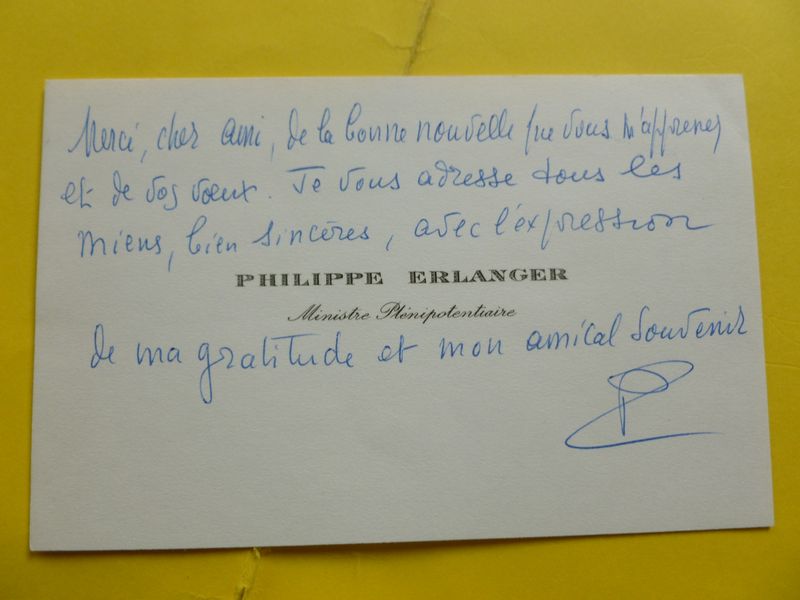 Merci, cher ami, de la bonne nouvelle que vous m'apprenez
et de vos vœux. Je vous adresse tous les
miens, bien sincères, avec l'expression
PHILIPPE ERLANGER
Ministre Plénipotentiaire
de ma gratitude et mon amical souvenir